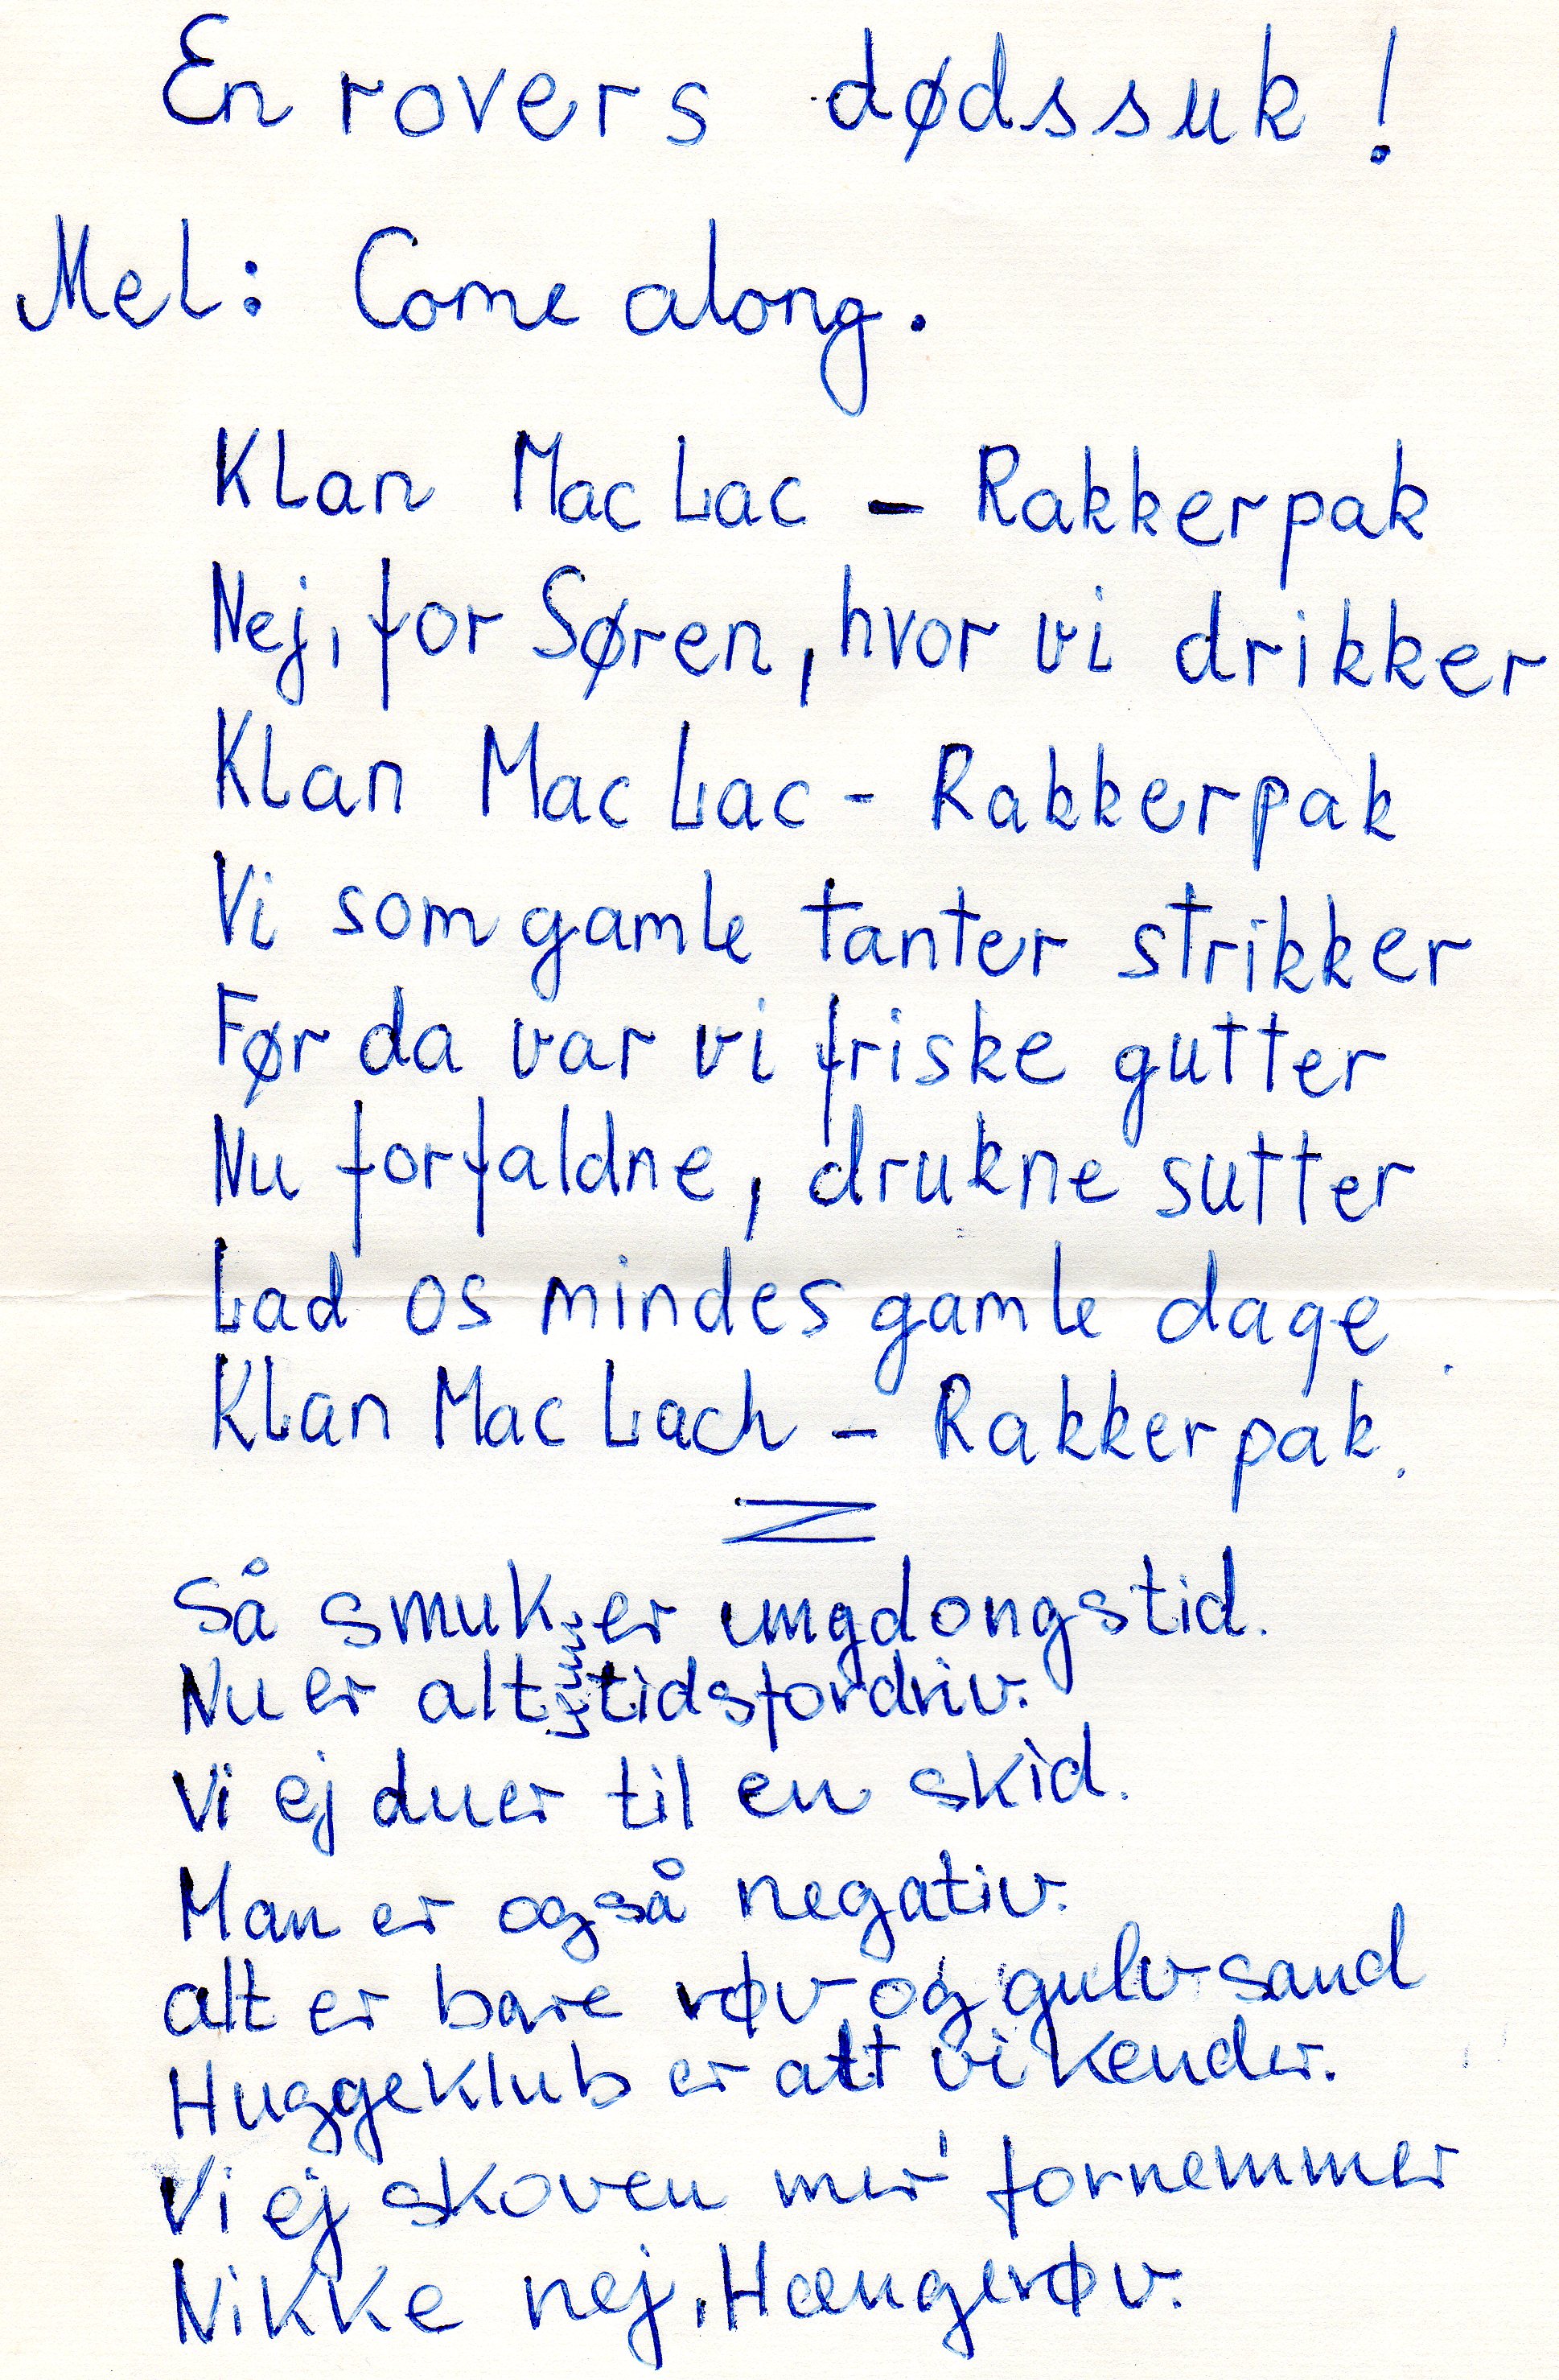 En rovers dødssuk!
Mel: Come along.
Klan Mac Lac – Rakkerpak
Nej, for Søren, hvor vi drikker
Klan Mac Lac - Rakkerpak
Vi som gamle tanter strikker
Før da var vi friske gutter
Nu forfaldne, drukne sutter
Lad os mindes gamle dage.
Klan Mac Lach – Rakkerpak.
Så smuk er ungdongstid.
Nu er alt tidsfordriv.
Vi ej duer til en skid.
Man er også negativ.
alt er bare røv og gulvsand
Huggeklub er alt vi kender.
Vi ej skoven mer' fornemmer
Nikke nej, Hængerøv.